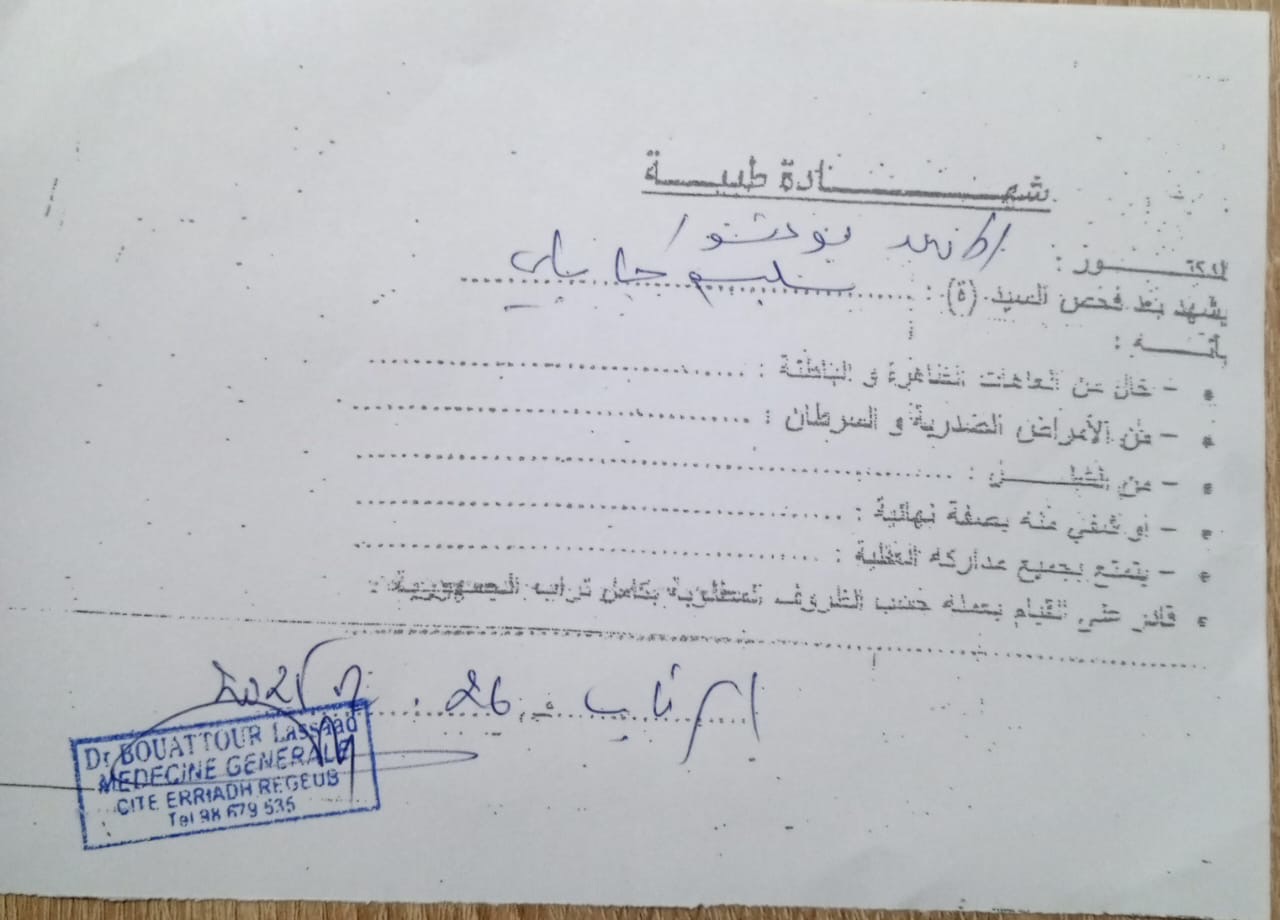 شهادة طبية
الدكتور :
يشهد بعد فحص السيد (ة) : سليم جابلي
بأنه :
• - خال من العاهات الظاهرة و الباطنة :
• - من الأمراض الصدرية و السرطان :
• - من الشلل :
• - أو شفي منه بصفة نهائية :
• - يتمتع بجميع مداركه العقلية :
• قادر على القيام بعمله حسب الظروف المطلوبة بكامل تراب الجمهورية :
الرقاب في 26
Dr BOUATTOUR Lassaad
MEDECINE GENERALE
CITE ERRIADH REGEUB
Tel 98 679 535